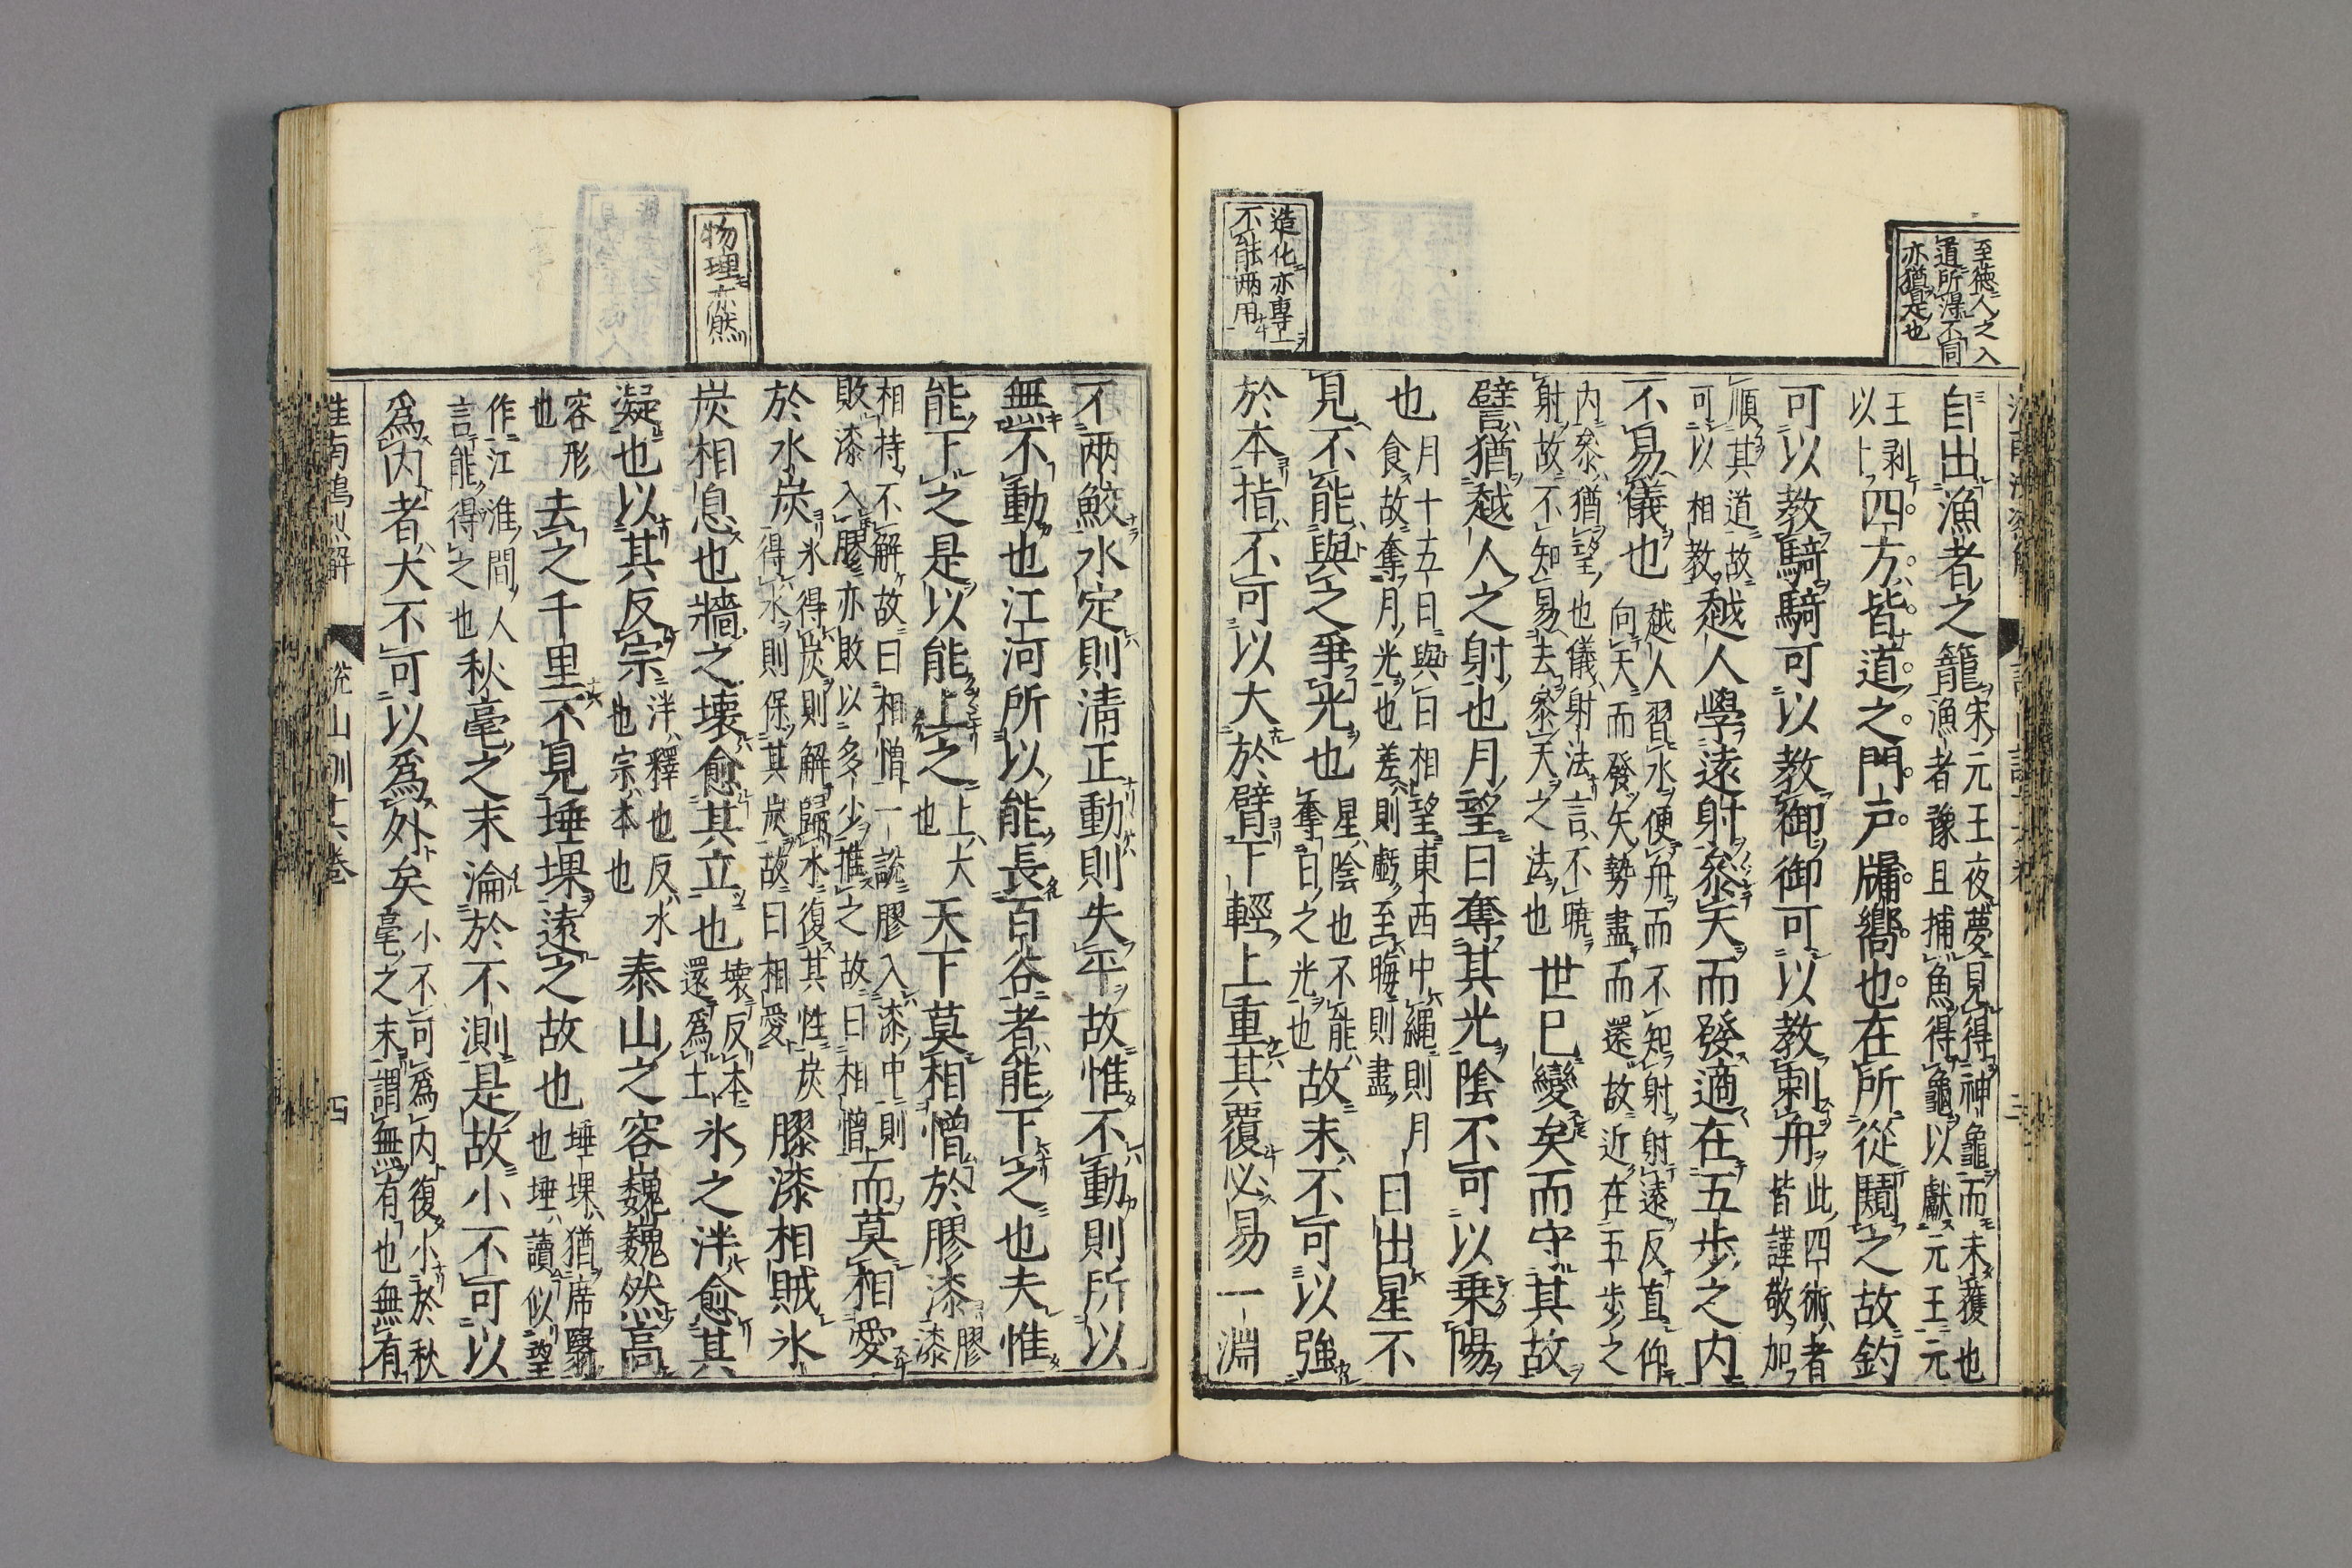 至德人之入
道所得不同
亦猶是也
造化亦專工
不能兩用
自出漁者之籠宋元王夜夢見得神龜而未獲也
漁者豫且捕魚得龜以獻元王元
王剥
以卜四方皆道之門戶牖嚮也在所從闚之故釣
可以教騎騎可以教御御可以教剌舟此四術者
皆謹敬加
順其道故
可以相教越人學遠射參天而發適在五步之内
不易儀也越人習水便舟而不知射射遠反直仰
向天而發矢勢盡而還故近在五步之
内參猶望也儀射法言不曉
射故不知易去參天之法也世已變矣而守其故
譬猶越人之射也月望日奪其光陰不可以乗陽
也月十五日與日相望東西中繩則月
食故奪月光也差則虧至晦則盡日出星不
見不能與之爭光也星陰也不能
奪日之光也故末不可以強
於本指不可以大於臂下輕上重其覆必易一淵
物理亦然
不兩鮫水定則淸正動則失平故惟不動則所以
無不動也江河所以能長百谷者能下之也夫惟
能下之是以能上之上大
也天下莫相憎於膠漆膠
漆
相持不解故曰相憎一說膠入漆中則
敗漆入膠亦敗以多少推之故曰相憎而莫相愛
於水炭氷得炭則解歸水復其性炭
得水則保其炭故曰相愛膠漆相賊氷
炭相息也牆之壞愈其立也壞反本
還爲土氷之泮愈其
凝也以其反宗泮釋也反水
也宗本也泰山之容巍巍然高
容形
也去之千里不見埵堁遠之故也埵堁猶席翳
也埵讀似望
作江淮間人
言能得之也秋毫之末淪於不測是故小不可以
爲内者大不可以爲外矣小不可爲内復小於秋
毫之末謂無有也無有
淮南鴻烈解
說山訓
卷
四